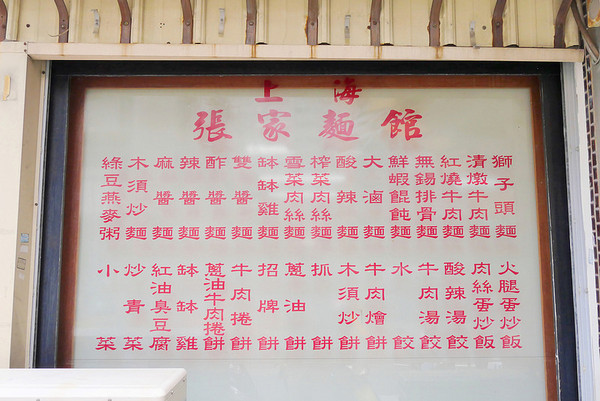 上海
張家麵館
獅子頭麵
清燉牛肉麵
紅燒牛肉麵
無錫排骨麵
鮮蝦餛飩麵
大滷麵
酸辣麵
榨菜肉絲麵
雪菜肉絲麵
缽缽雞麵
雙醬麵
酢醬麵
辣醬麵
麻醬麵
木須炒麵
綠豆燕麥粥
火腿蛋炒飯
肉絲蛋炒飯
酸辣湯餃
牛肉湯餃
水餃
牛肉燴餅
木須炒餅
抓餅
蔥油餅
招牌餅
牛肉捲餅
蔥油牛肉捲餅
缽缽雞
紅油臭豆腐
炒青菜
小菜